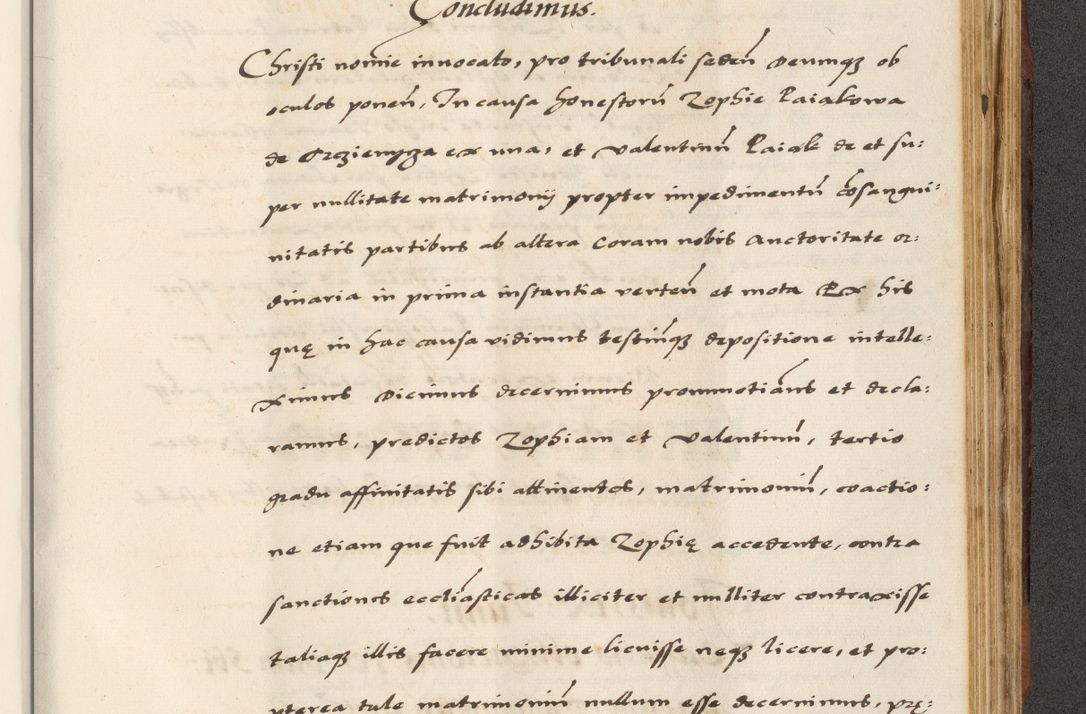 Concludimus.
Christi nomie innocato, pro tribunali seden̄ Deumq̨ ob
oculos ponen̄, In causa honestorū Zophie Paiakowa
de ex una, et Valentinū Paiak de et su:
per nullitate matrimonij propter impedimentū cōsangui:
nitatis partibus ab altera coram nobis Auctoritate or:
dinaria in prima instantia verten̄ et mota Ex his
quę in hac causa vidimus testiūq̨ depositione intelle:
ximus Dicimus decernimus pronunctiāns et decla:
ramus, predictos Zophiam et Valentinū, tertio
gradu affinitatis sibi attinentes, matrimoniū, coactio:
ne etiam que fuit adhibita Zophię accedente, contra
sanctiones eccliāsticas illiciter et nulliter contraxisse
taliaq̨ illis facere minime licuisse neq̨ licere, et pro:
pterea tale matrimoniū nullum esse decernimus, prę: